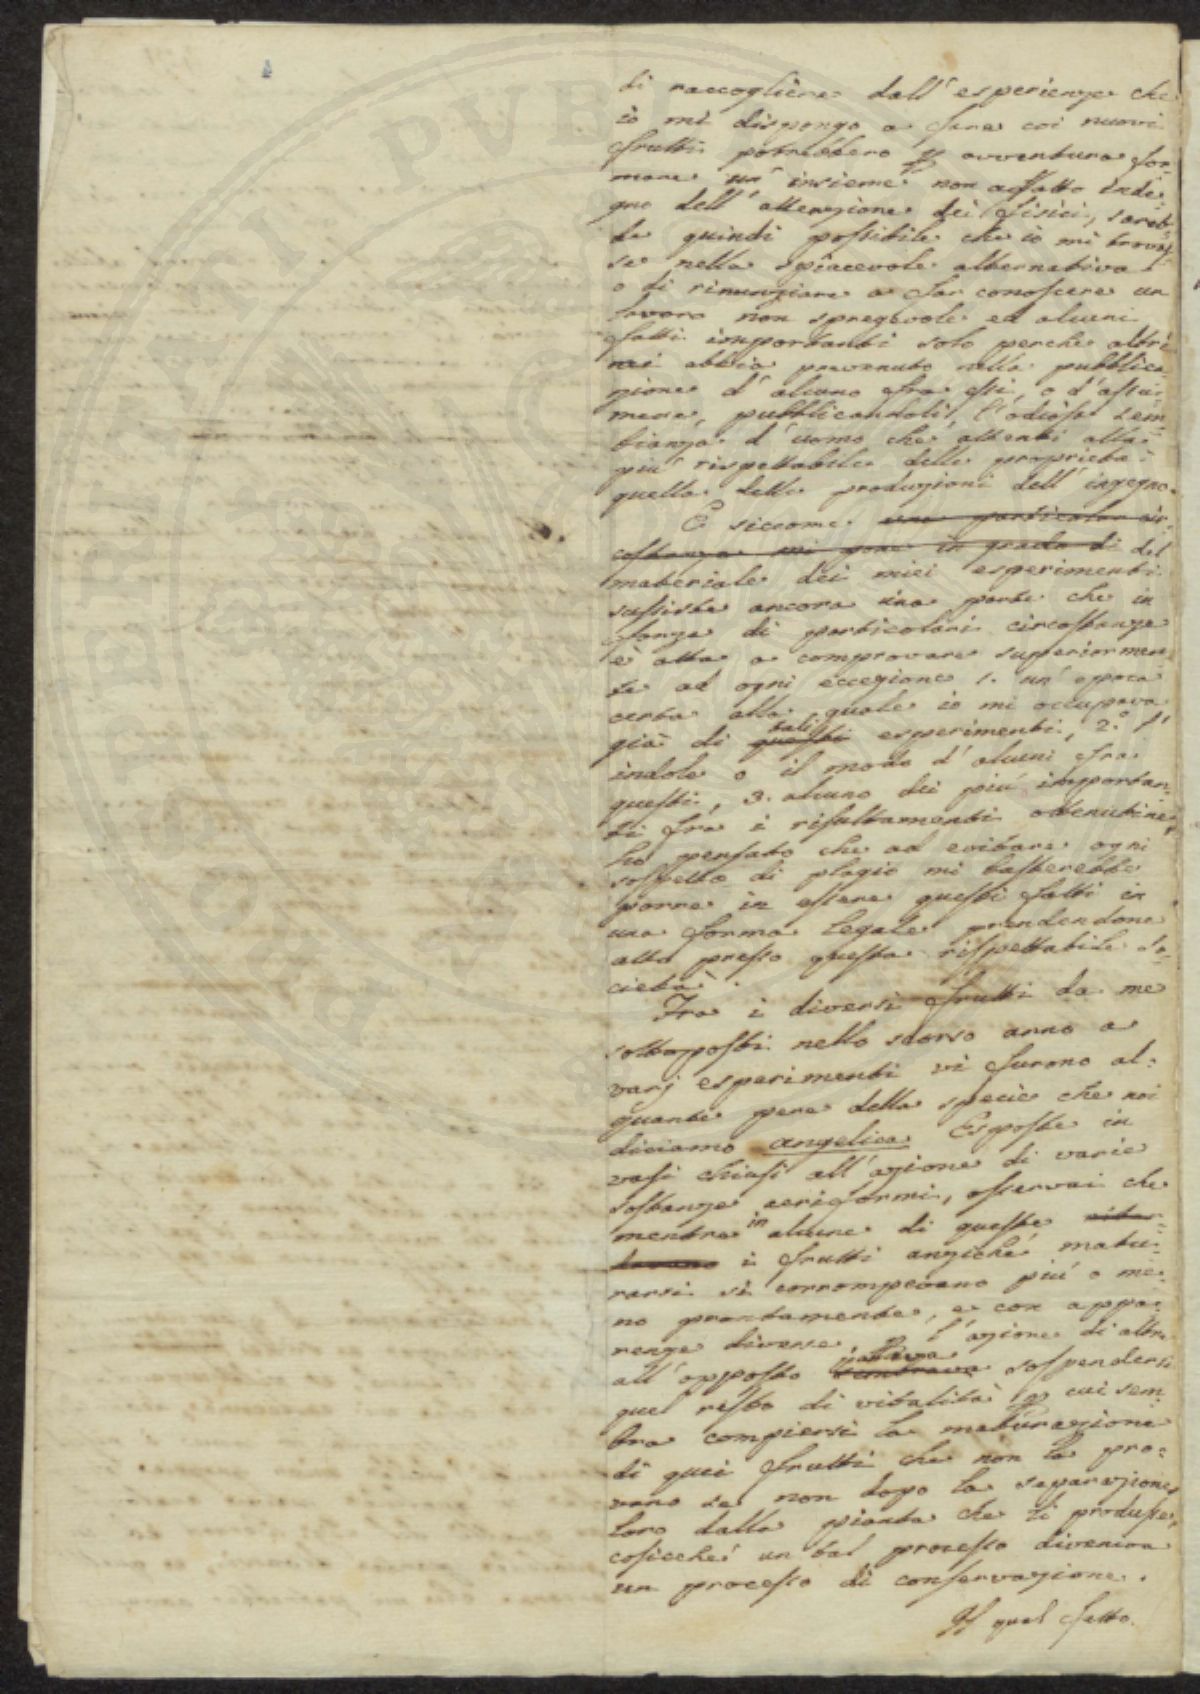 di raccogliere dall'esperienze che
io mi dispongo a fare coi nuovi
frutti potrebbero p avventura for-
mare un insieme non affatto inde-
gno dell'attenzione dei fisici, sareb-
be quindi possibile che io mi trovas-
se nella spiacevole alternativa
o di rinunziare a far conoscere un
lavoro non spregevole ed alcuni
fatti importanti solo perchè altri
mi abbia prevenuto nella pubblica-
zione d'alcuno fra essi, o d'assu-
mere, pubblicandoli, l'odiosa sem-
bianza d'uomo che attenti alla
più rispettabile delle proprietà
quella delle produzioni dell'ingegno.
E siccome una particolar cir-
costanza mi pone in grado di del
materiale dei miei esperimenti
sussiste ancora una parte che in
forza di particolari circostanze
è atta a comprovare superiormen
te ad ogni eccezione 1. un'epoca
certa alla quale io mi occupava
già di questi tali esperimenti, 2.° l'
indole o il modo d'alcuni fra
questi, 3. alcuno dei più importan-
ti fra i risultamenti ottenutine,
ho pensato che ad evitare ogni
sospetto di plagio mi basterebbe
porre in essere questi fatti in
una forma legale prendendone
atto presso questa rispettabile So-
cietà.
Fra i diversi frutti da me
sottoposti nello scorso anno a
varj esperimenti vi furono al-
quante pere della specie che noi
diciamo angelica. Esposte in
vasi chiusi all'azione di varie
sostanze aeriformi, osservai che
mentre in alcune di queste
i frutti anzichè matu-
rarsi si corrompevano più o me-
no prontamente, e con appa-
renze diverse p l'azione di altre
all'opposto sembrava pareva sospendersi
quel resto di vitalità p cui sem
bra compiersi la maturazione
di quei frutti che non la pro-
vano se non dopo la separazione
loro dalla pianta che li produsse,
cosicchè un tal processo diveniva
un processo di conservazione.
Il qual fatto